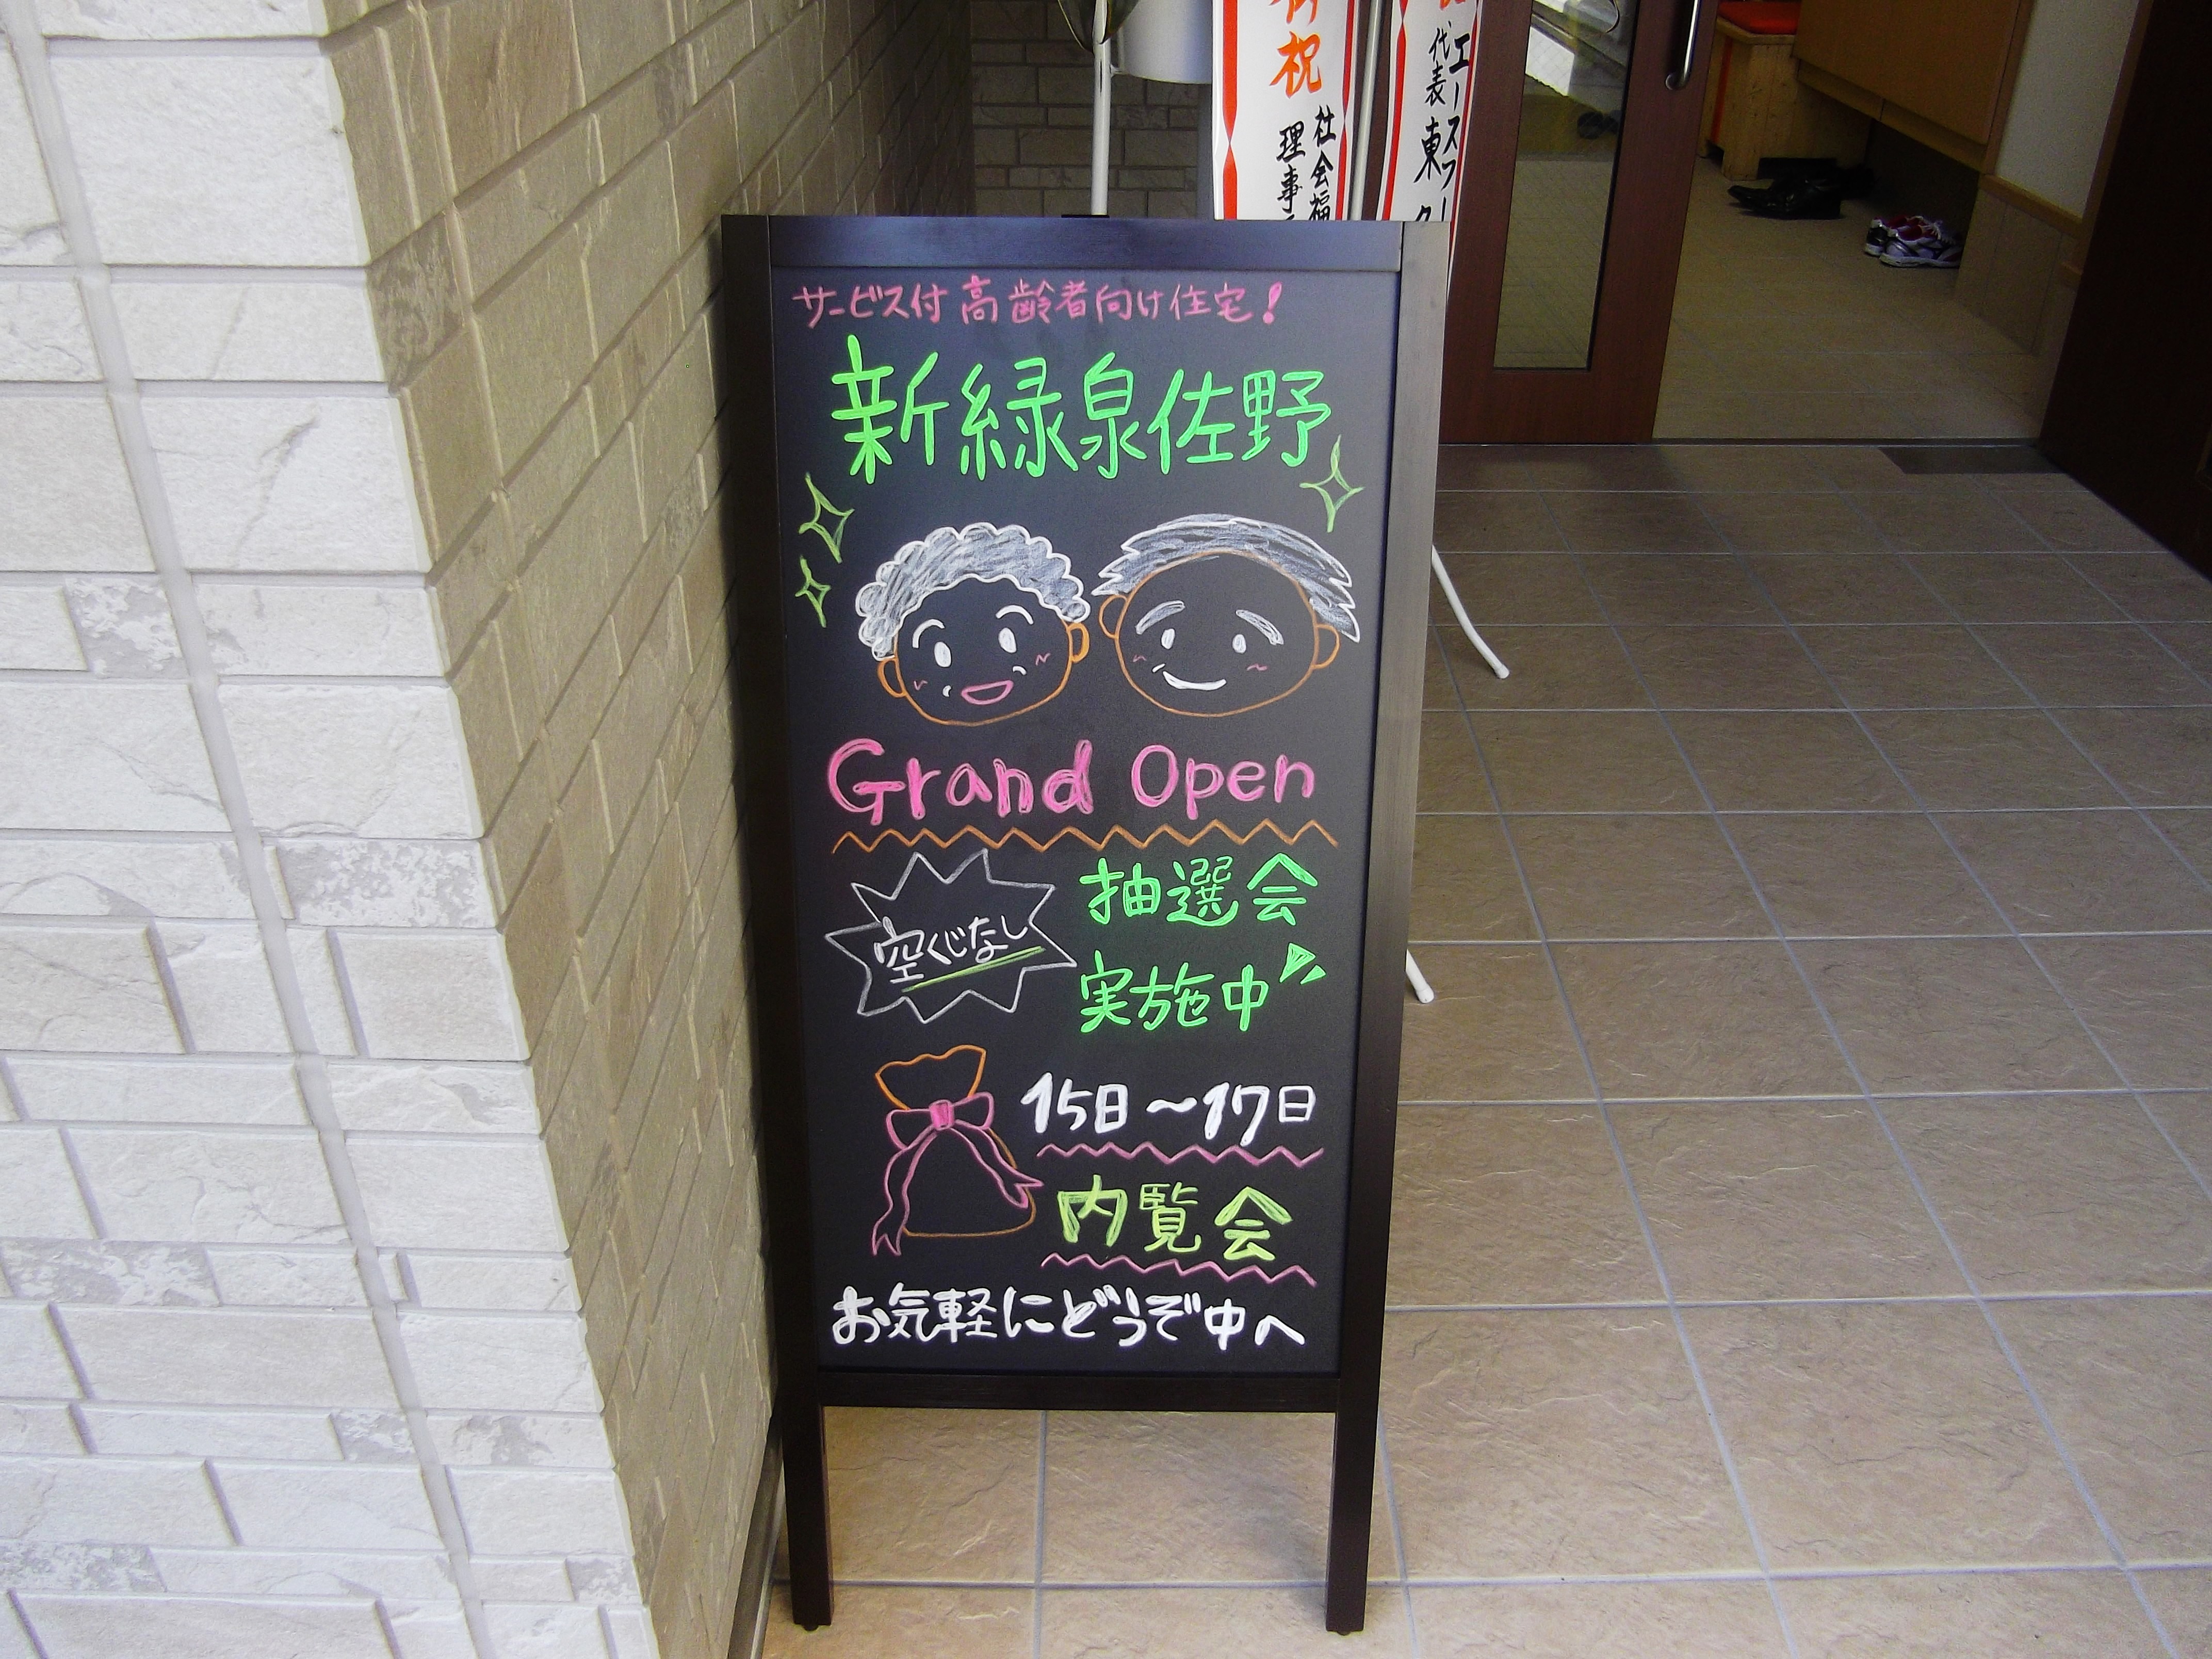 御祝
社会福
理事
エースフー
代表 東
サービス付高齢者向け住宅!
新緑泉佐野
Grand Open
空くじなし
抽選会
実施中
15日～17日
内覧会
お気軽にどうぞ中へ